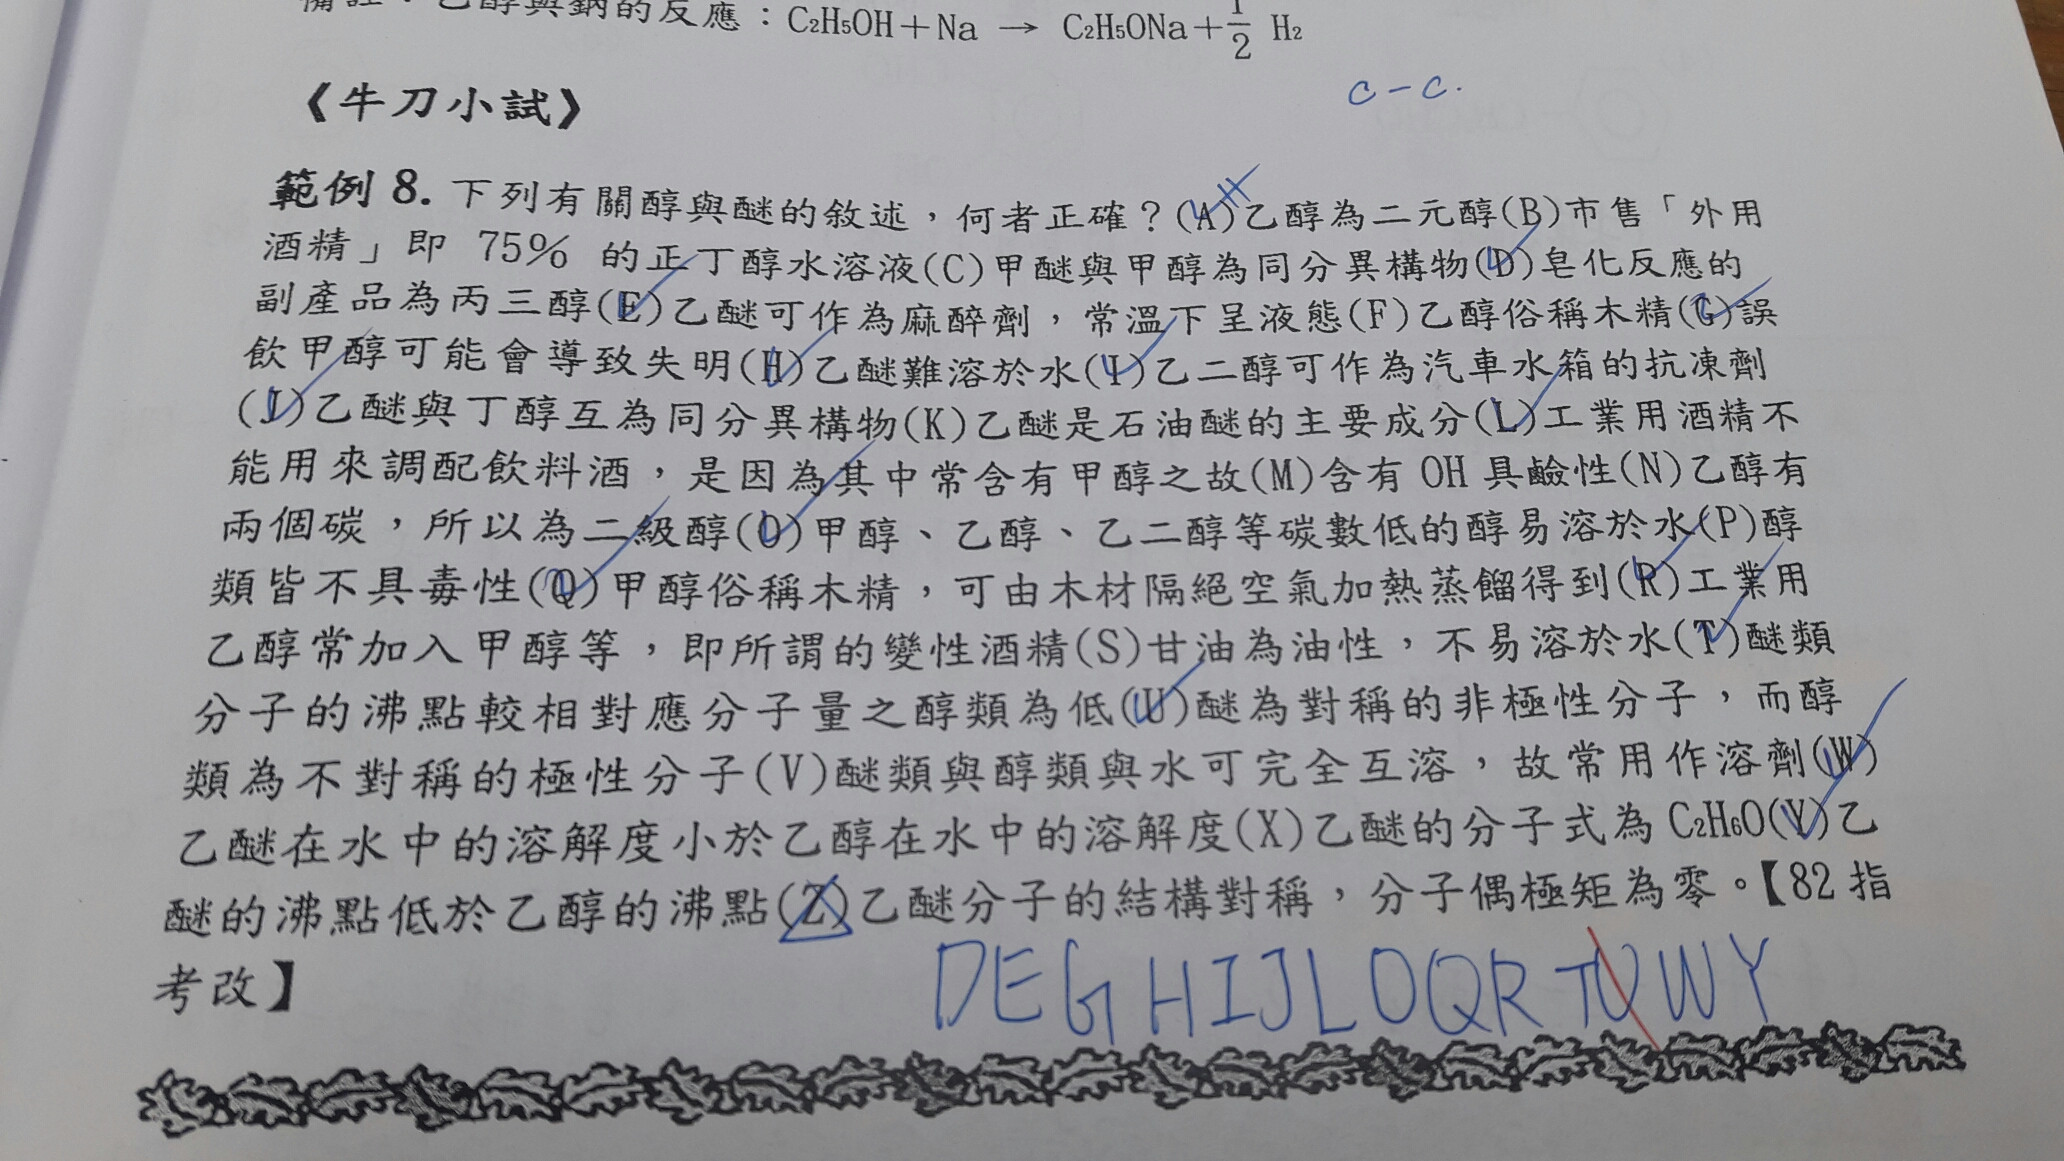 備註：乙醇與鈉的反應：C₂H₅OH＋Na → C₂H₅ONa＋1/2 H₂
C-C.
《牛刀小試》
範例 8. 下列有關醇與醚的敘述，何者正確？(A)乙醇為二元醇(B)市售「外用
酒精」即 75% 的正丁醇水溶液(C)甲醚與甲醇為同分異構物(D)皂化反應的
副產品為丙三醇(E)乙醚可作為麻醉劑，常溫下呈液態(F)乙醇俗稱木精(G)誤
飲甲醇可能會導致失明(H)乙醚難溶於水(I)乙二醇可作為汽車水箱的抗凍劑
(J)乙醚與丁醇互為同分異構物(K)乙醚是石油醚的主要成分(L)工業用酒精不
能用來調配飲料酒，是因為其中常含有甲醇之故(M)含有 OH 具鹼性(N)乙醇有
兩個碳，所以為二級醇(O)甲醇、乙醇、乙二醇等碳數低的醇易溶於水(P)醇
類皆不具毒性(Q)甲醇俗稱木精，可由木材隔絕空氣加熱蒸餾得到(R)工業用
乙醇常加入甲醇等，即所謂的變性酒精(S)甘油為油性，不易溶於水(T)醚類
分子的沸點較相對應分子量之醇類為低(U)醚為對稱的非極性分子，而醇
類為不對稱的極性分子(V)醚類與醇類與水可完全互溶，故常用作溶劑(W)
乙醚在水中的溶解度小於乙醇在水中的溶解度(X)乙醚的分子式為 C₂H₆O(Y)乙
醚的沸點低於乙醇的沸點(Z)乙醚分子的結構對稱，分子偶極矩為零。【82 指
考改】
DEGHIJLOQRTUWY